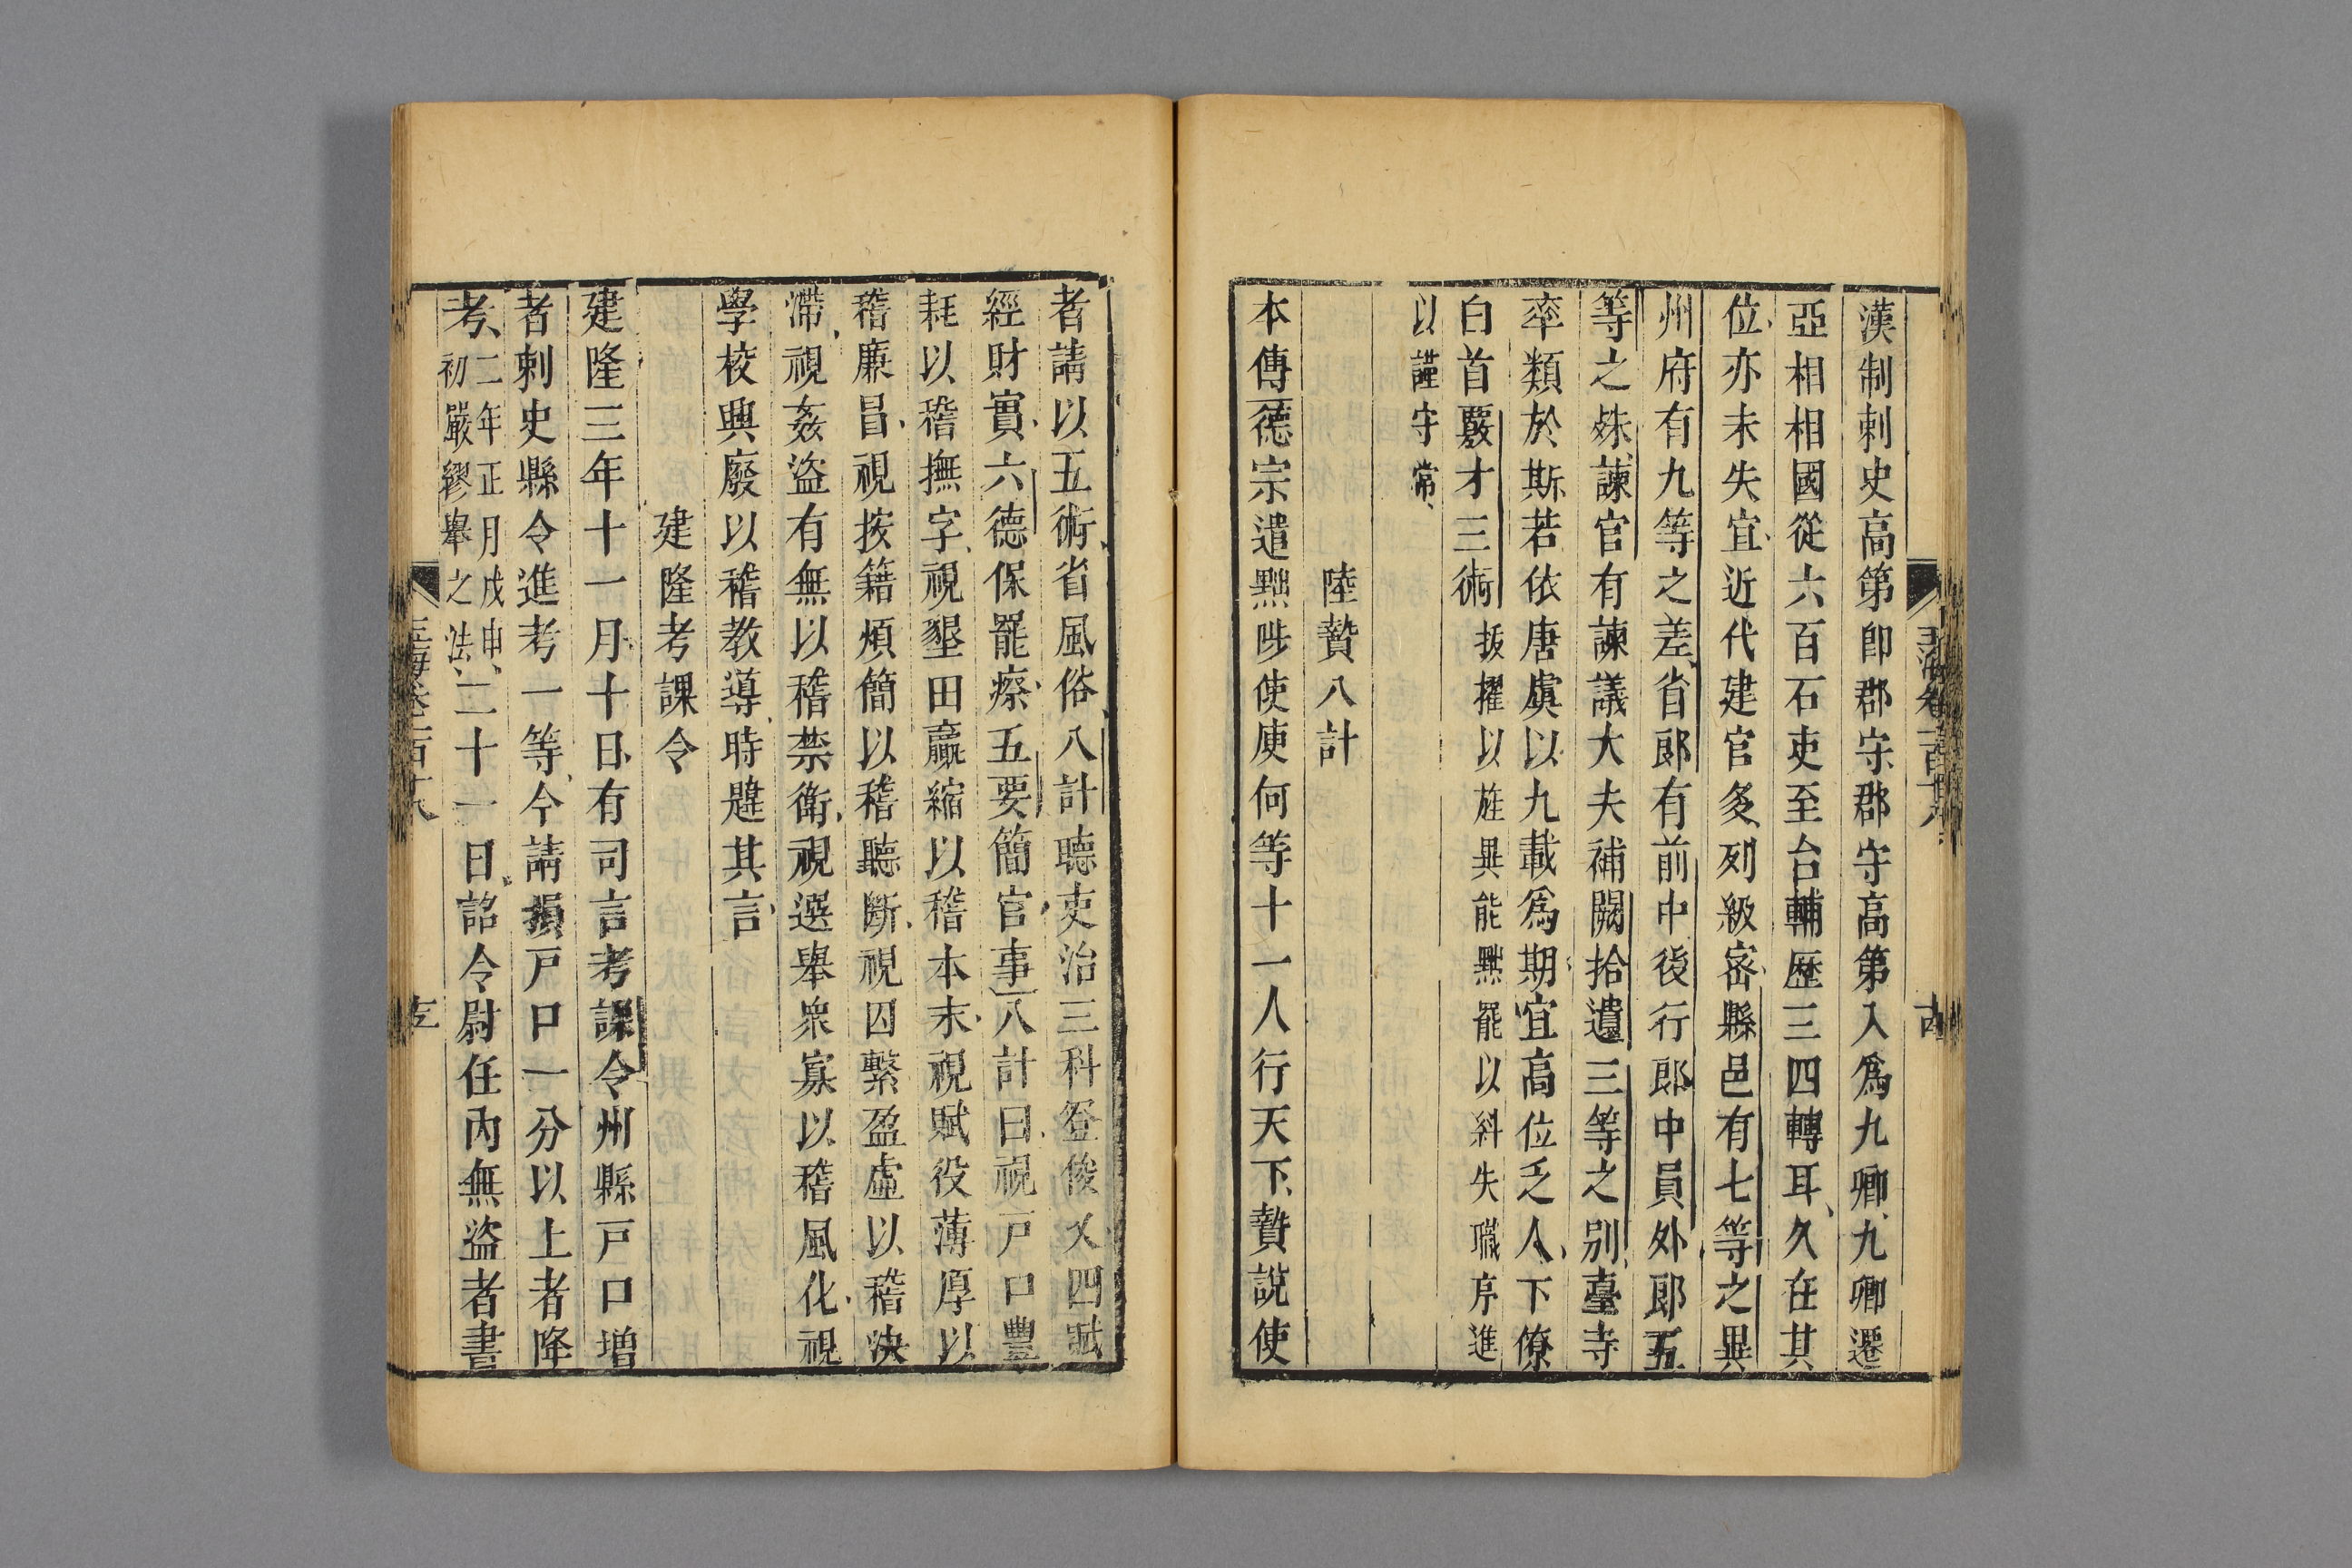 漢制刺史高第卽郡守郡守高第入爲九卿九卿遷
亞相相國從六百石吏至台輔歷三四轉耳久在其
位亦未失宜近代建官多列級密縣邑有七等之異
州府有九等之差省郎有前中後行郎中員外郎五
等之殊諫官有諫議大夫補闕拾遺三等之别臺寺
率類於斯若依唐虞以九載爲期宜高位乏人下僚
白首覈才三術拔擢以旌異能黜罷以糾失職序進
以謹守常
陸贄八計
本傳德宗遣黜陟使庾何等十一人行天下贄說使
者請以五術省風俗八計聽吏治三科登俊乂四賦
經財實六德保罷瘵五要簡官事八計曰視戸口豐
耗以稽撫字視墾田贏縮以稽本末視賦役薄厚以
稽廉冒視按籍煩簡以稽聽斷視囚繫盈虛以稽決
滯視姦盜有無以稽禁衛視選舉衆寡以稽風化視
學校興廢以稽教導時韙其言
建隆考課令
建隆三年十一月十日有司言考課令州縣戸口增
者刺史縣令進考一等今請損戸口一分以上者降
考二年正月戊申初嚴繆舉之法二十一日詔令尉任內無盜者書